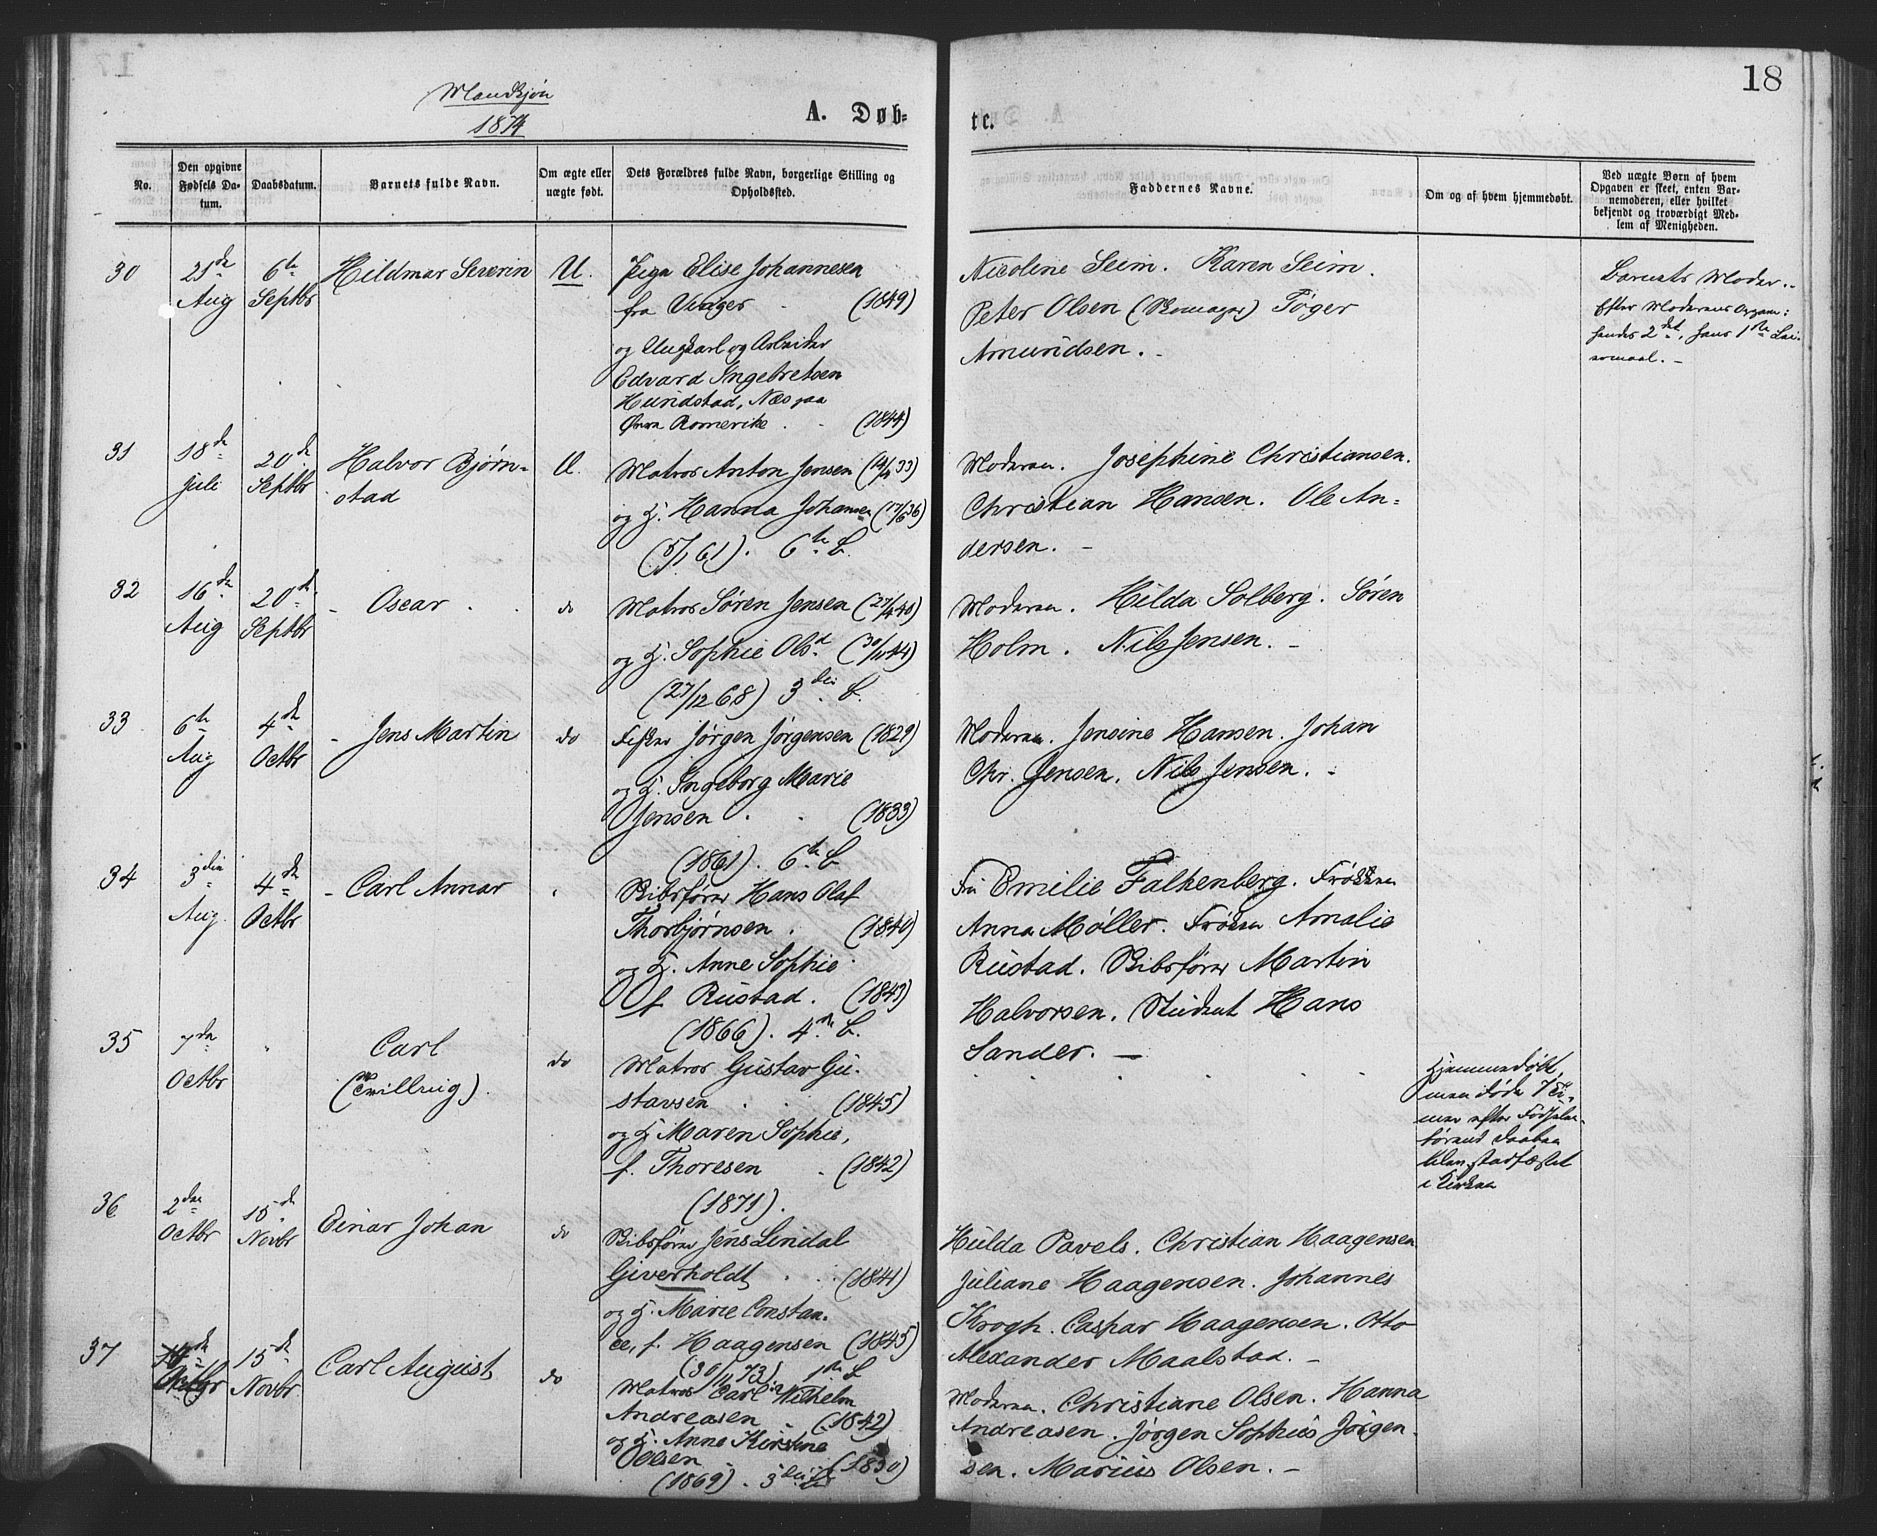 17
18
Mandkjøn
1874
A. Døb-
te.
No.
Den opgivne Fødsels Da-
tum.
Daabsdatum.
Barnets fulde Navn.
Om ægte eller
uægte født.
Dets Forældres fulde Navn, borgerlige Stilling og
Opholdssted.
Faddernes Navne.
Om og af hvem hjemmedøbt.
Ved uægte Børn af hvem
Opgaven er skeet, enten Bar-
nemoderen, eller hvilket
bekjendt og troværdigt Med-
lem af Menigheden.
30
21de
Aug
6te
Septbr
Hildmar Severin
U.
Pige Elise Johannesen
fra Vinger (1849)
og Ungkarl og Arbeider
Edvard Ingebretsen
Hundstad, Næs paa
Øvre Romerike (1844)
Nicoline Seim. Karen Seim.
Peter Olsen (Romager) Tøger
Amundsen.
Barnets Moder.
Efter Moderens Opgave:
hendes 2det, hans 1ste Lei-
ermaal.
31
18de
Juli
20de
Septbr
Halvor Bjørn-
stad
U.
Matros Anton Jensen (14/4 33)
og H. Hanna Johansen (17/6 36)
(5/1 61). 6te B.
Moderen. Josephine Christiansen.
Christian Hansen. Ole An-
dersen.
32
16de
Aug
20de
Septbr
Oscar
do
Matros Søren Jensen (27/4 40)
og H. Sophie Olsd (30/11 44)
(27/12 68) 3die B.
Moderen. Hilda Solberg. Søren
Holm. Nils Jensen.
33
6te
Aug
4de
Octbr
Jens Martin
do
Fisker Jørgen Jørgensen (1829)
og H. Ingeborg Marie
Jensen (1833)
(1861). 6te B
Moderen. Jensine Hansen. Johan
Chr. Jensen. Nils Jensen.
34
3die
Aug.
4de
Octbr
Carl Annar
Skibsfører Hans Olaf
Thorbjørnsen. (1840)
og H. Anne Sophie
f. Rustad. (1843)
(1866). 4de B.
Fru Emilie Falkenberg. Frøken
Anna Møller. Frøken Amalie
Rustad. Skibsfører Martin
Halvorsen. Student Hans
Sander.
35
7de
Octbr
Carl
(Tvilling).
do
Matros Gustav Gu-
stavsen (1845)
og H. Maren Sophie,
f. Thoresen (1842)
(1871).
Hjemmedøbt,
men døde 7 Ti-
mer efter Fødselen
førend Daaben
blev stadfæstet
i Kirken
36
2den
Octbr
15de
Novbr
Einar Johan
do
Skibsfører Jens Lindal
Giverholdt (1841)
og H. Marie Constan-
ce, f. Haagensen (1845)
(30/11 73). 1ste B
Hulda Pavels. Christian Haagensen
Juliane Haagensen. Johannes
Krogh. Caspar Haagensen. Otto
Alexander Maalstad.
37
15de
Novbr
Carl August
do
Matros Carl Wilhelm
Andreasen (1842)
og H. Anne Kirstine
Olsen (1830)
(1869). 3die B
Moderen. Christiane Olsen. Hanna
Andreasen. Jørgen Sophus Jørgen-
sen. Marius Olsen.